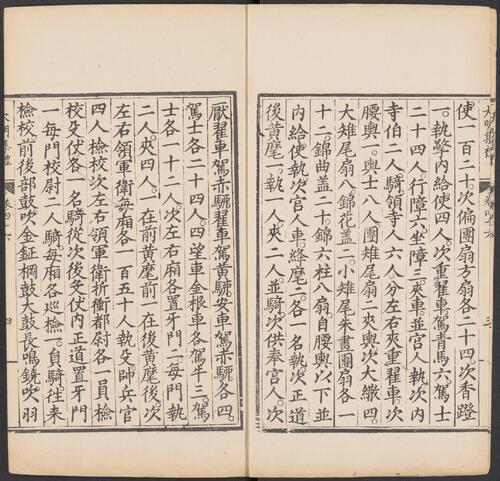 使一百二十。次偏團扇方扇各二十四次香蹬
一。執擎内給使四人。次重翟車。駕青馬六。駕士
二十四人。行障六坐障三。夾車。並宫人執次内
寺伯二人騎。領寺人六人分左右夾重翟車。次
腰輿一。輿士八人團雉尾扇二夾輿。次大繖四。
大雉尾扇八。錦花蓋二。小雉尾朱書團扇各一
十二。錦曲蓋二十。錦六柱八扇。自腰輿以下並
内給使執次宫人車。絳麾二。各一名執次正道
後黄麾一。執一人夾二人並騎次供奉宫人。次
大明集禮
卷四十六
三
厭翟車駕赤騮翟車駕黄騮安車駕赤騮各四。
駕士各二十四人。四望車金根車各駕牛三。駕
士各一十二人。次左右廂各置牙門二每門執
二人。夾四人。一在前黄麾前一在後黄麾後。次
左右領軍衛每廂各一百五十人執殳帥兵官
四人檢校次左右領軍衛折衝都尉各一員檢
校殳仗各一名騎從次後殳仗内正道置牙門
一每門校尉二人騎每廂各巡檢一。員騎往来
檢校前後部鼓吹金鉦棡鼓大鼓長鳴鐃吹羽
大明集禮
卷四十六
四